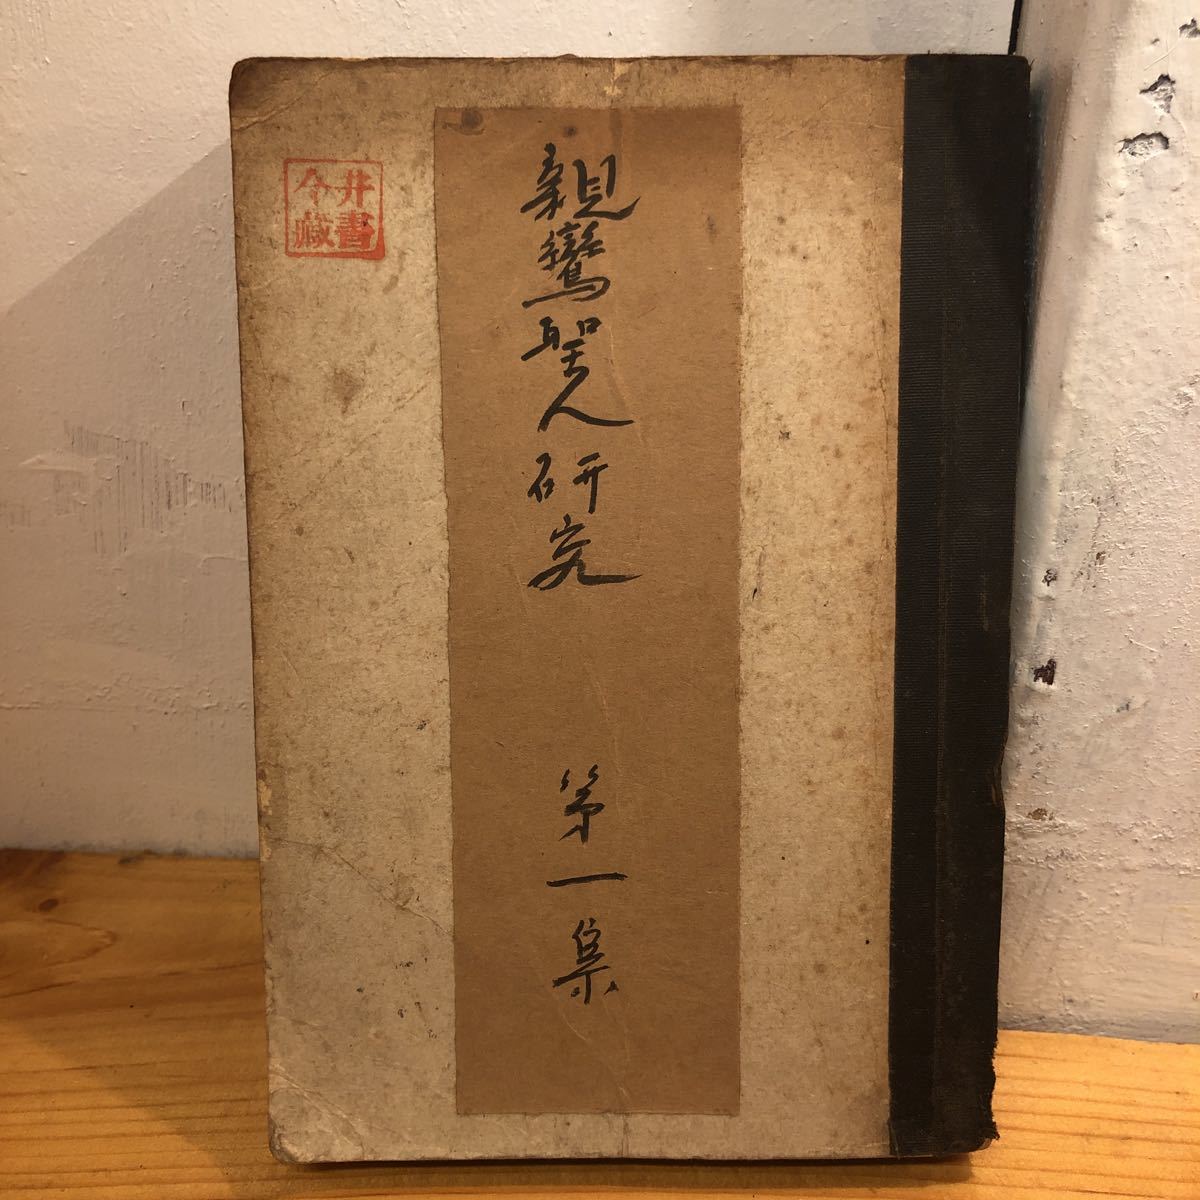 親鸞聖人研究 第一集
井書
今蔵